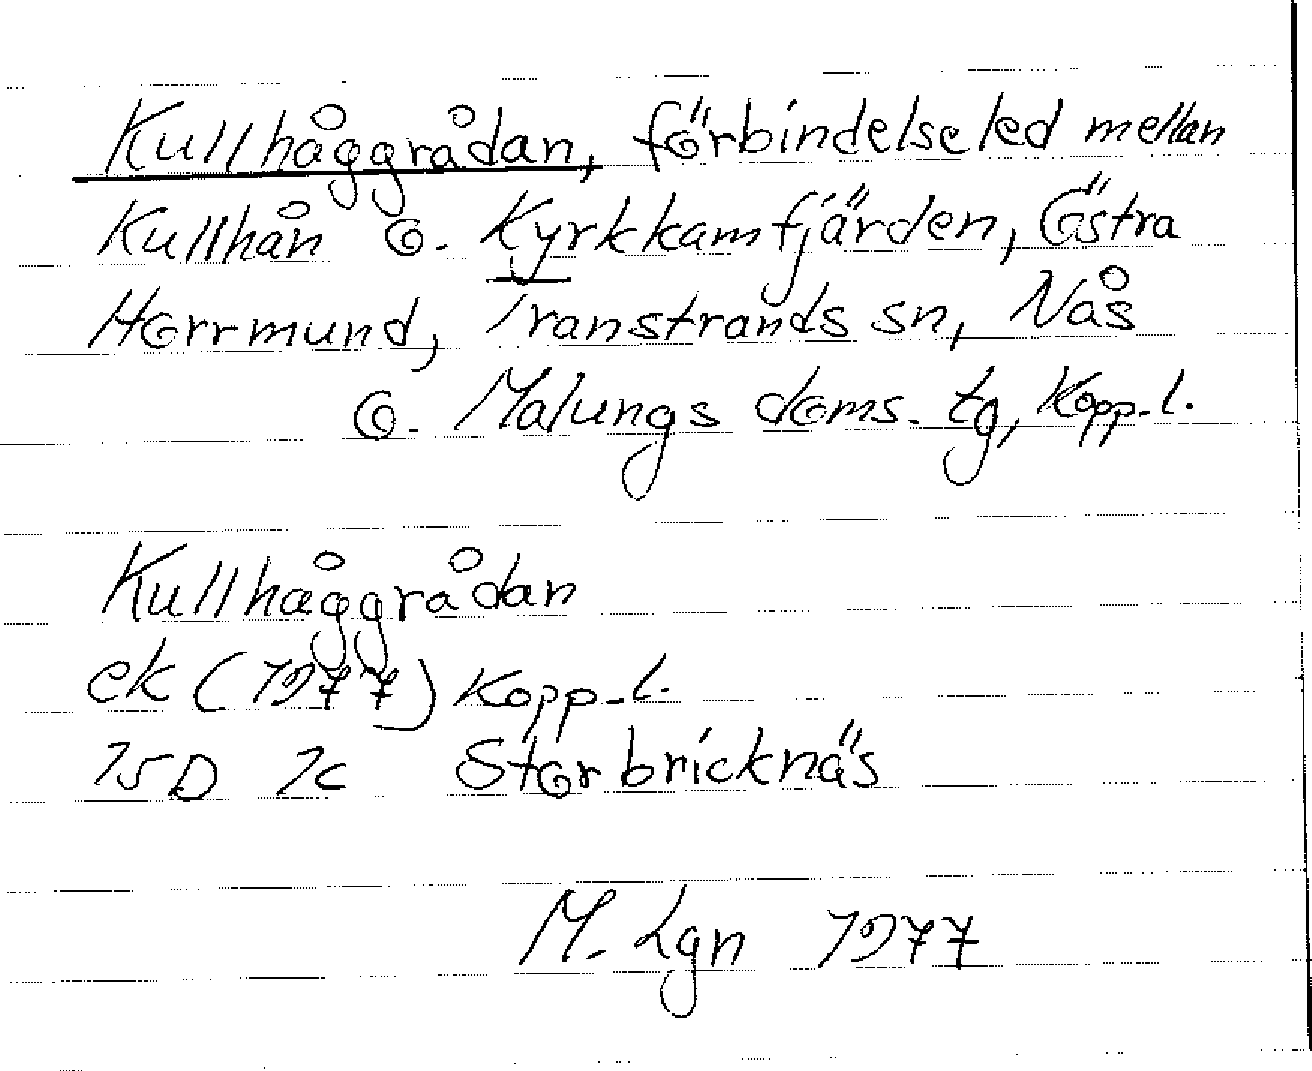 Kullhåggrådan, förbindelseled mellan
Kullhån o. Kyrkkamfjärden, Östra
Horrmund, Transtrands sn, Nås
o. Malungs doms. tg, Kopp.l.
Kullhåggrådan
ek (1977) Kopp-l.
15D 1c Storbricknäs
M. Lgn 1977